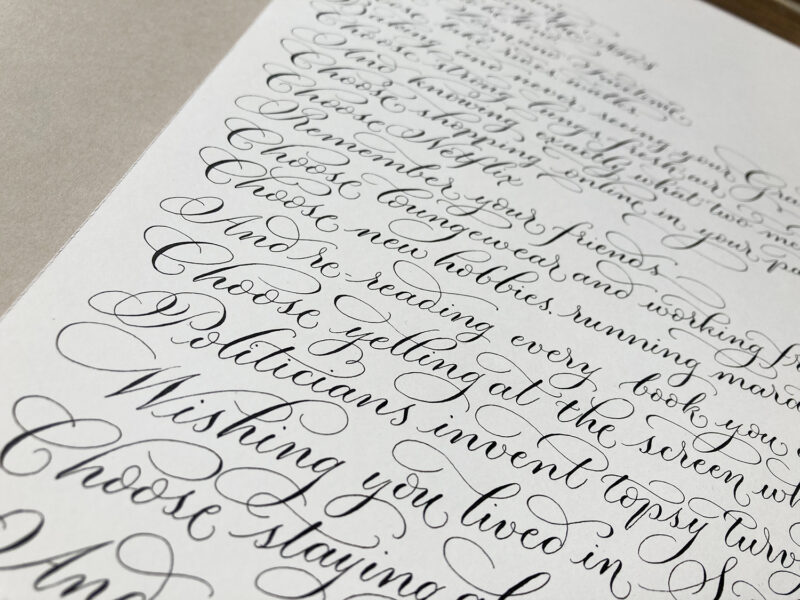 Choose
Baking and never seeing your Gra
Choose strong lungs fresh air
And knowing exactly what two me
Choose shopping online in your pa
Choose Netflix
Remember your friends
Choose loungewear and working fr
Choose new hobbies, running mara
And re-reading every book you
Choose yelling at the screen wh
Politicians invent topsy turv
Wishing you lived in S
Choose staying a
And